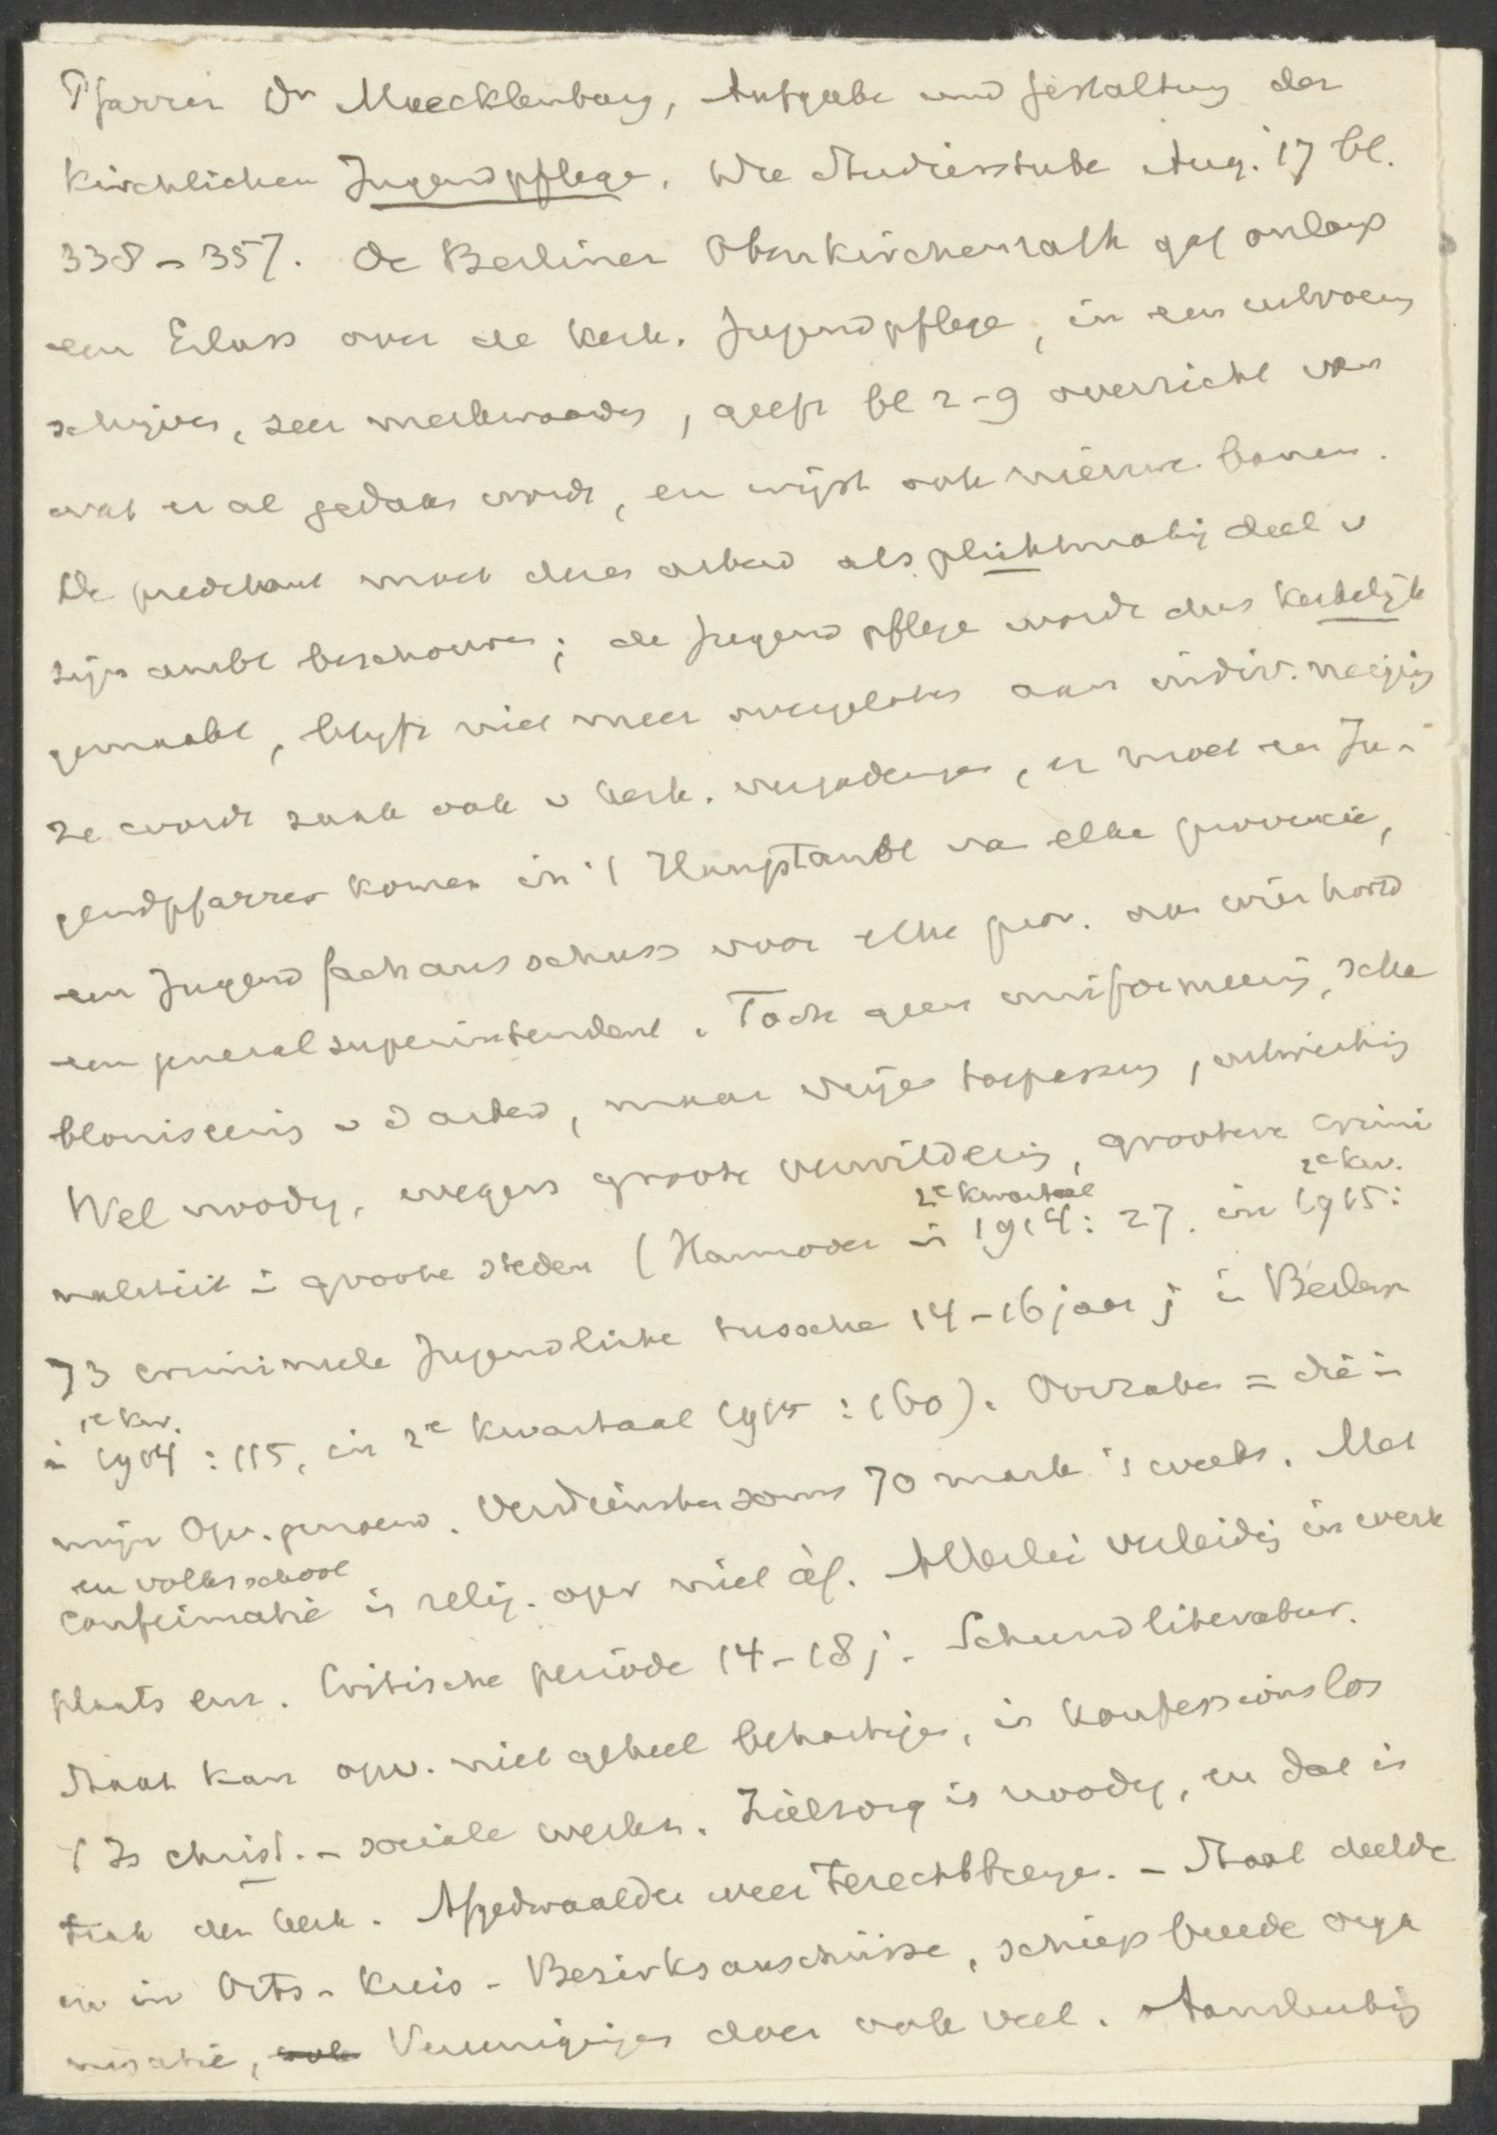 Pfarrer Dr Muecklenburg, Aufgabe und Gestaltung der
kirchlichen Jugendpflege. Die Studierstube Aug. '17 bl.
338–357. De Berliner Oberkirchenrath gaf onlangs
een Erlass over de kerk. Jugendpflege, in een uitvoerig
schrijven, zeer merkwaardig, geeft bl 2–9 overzicht van
wat er al gedaan wordt, en wijst ook nieuwe banen.
De predikant moet dezen arbeid als plichtmatig deel v
zijn ambt beschouwen; de Jugendpflege wordt dus kerkelijk
gemaakt, blijft niet meer overgelaten aan indiv. neiging
Ze wordt zaak ook v kerk. vergaderingen, er moet een Ju-
gendpfarrer komen in 't Hauptambt van elke provincie,
een Jugendfachausschuss voor elke prov. aan wier hoofd
een generalsuperintendent. Toch geen uniformeering, scha
bloniseering v d arbeid, maar vrije toepassing, ontwikkeling
Wel noodig, wegens groote verwildering, grootere crimi
2e kwartaal 2e kw.
naliteit in groote steden (Hannover in 1914: 27. in 1915:
73 crimineele Jugendliche tusschen 14–16 jaar; in Berlijn
1e kw.
in 1914: 115, in 2e kwartaal 1915: 160). Oorzaken = die in
mijn Opv. genoemd. Verdiensten soms 70 mark 's weeks. Met
en volksschool
confirmatie is relig. opv niet àf. Allerlei verleiding in werk
plaats enz. Critische periode 14–18 j. Schundliteratur.
Staat kan opv. niet geheel behartigen, is konfessionslos
't Is christ.– sociale werken. Zielzorg is noodig, en dat is
taak der kerk. Afgedwaalden weer terechtbrengen. – Staat deelde
in in Orts– Kreis– Bezirksausschüsse, schiep breede orga
nisatie, Vereenigingen doen ook veel. Aansluiting